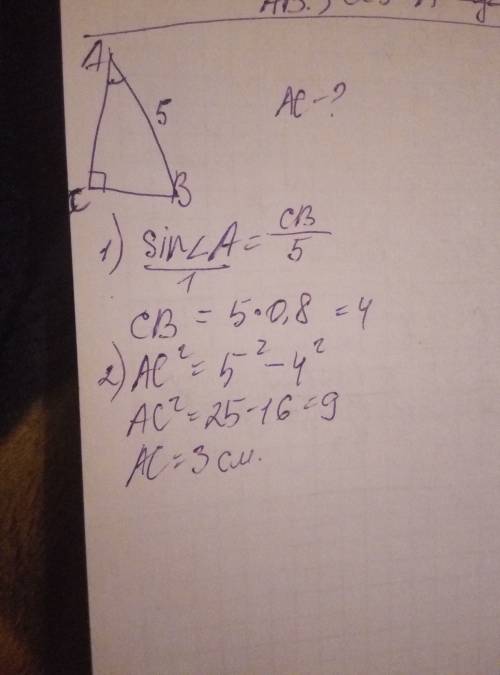 A
5
AC - ?
C
B
1) sin∠A = CB/5
1
CB = 5·0,8 = 4
2) AC² = 5² - 4²
AC² = 25 - 16 = 9
AC = 3 см.